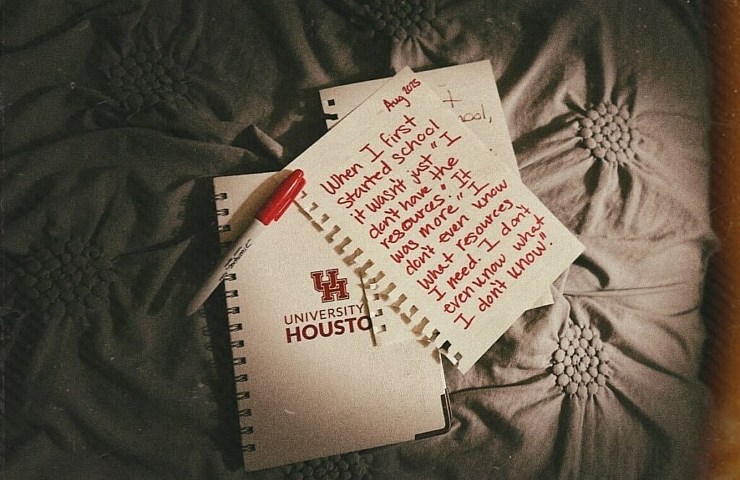 Aug 2025
When I first
started school
it wasn't just "I
don't have the
resources." It
was more "I
don't even know
what resources
I need. I don't
even know what
I don't know".
UH
UNIVERSITY
HOUSTO